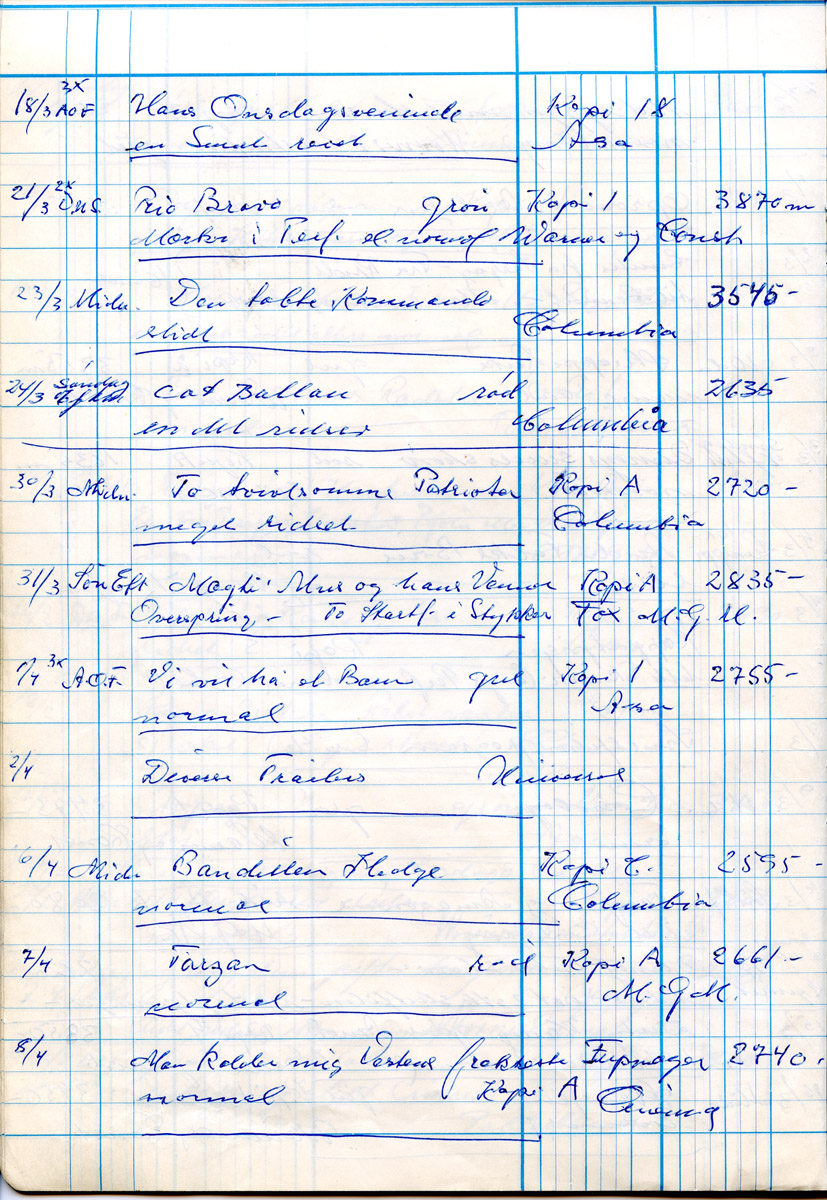 18/3 3x AOF Hans Onsdagsveninde Kopi 18
en Smule revet Asa
21/3 2x Rio Bravo grøn Kopi 1 3870 m
Mærker i Perf. el. normal Warner og Const
23/3 Midn. Den tabte Kommando 3545-
slidt Columbia
24/3 Søndag Eftm Cat Ballau rød 2635
en del ridser Columbia
30/3 Midn. To tvivlsomme Patrioter Kopi A 2720-
meget ridset Columbia
31/3 Søn Eft Magti Mus og hans Venner Kopi A 2835-
Overspring - To Startf. i Stykker Fox M.G.M.
1/4 3x A.O.F. Vi vil ha et Barn gul Kopi 1 2755-
normal Asa
2/4 Diverse Trailers Universal
6/4 Midn Banditten Hedge Kopi C. 2595-
normal Columbia
7/4 Tarzan rød Kopi A 2661.-
normal M.G.M.
8/4 Man kalder mig Vestens frækkeste Fupmager 2740.
normal Kopi A